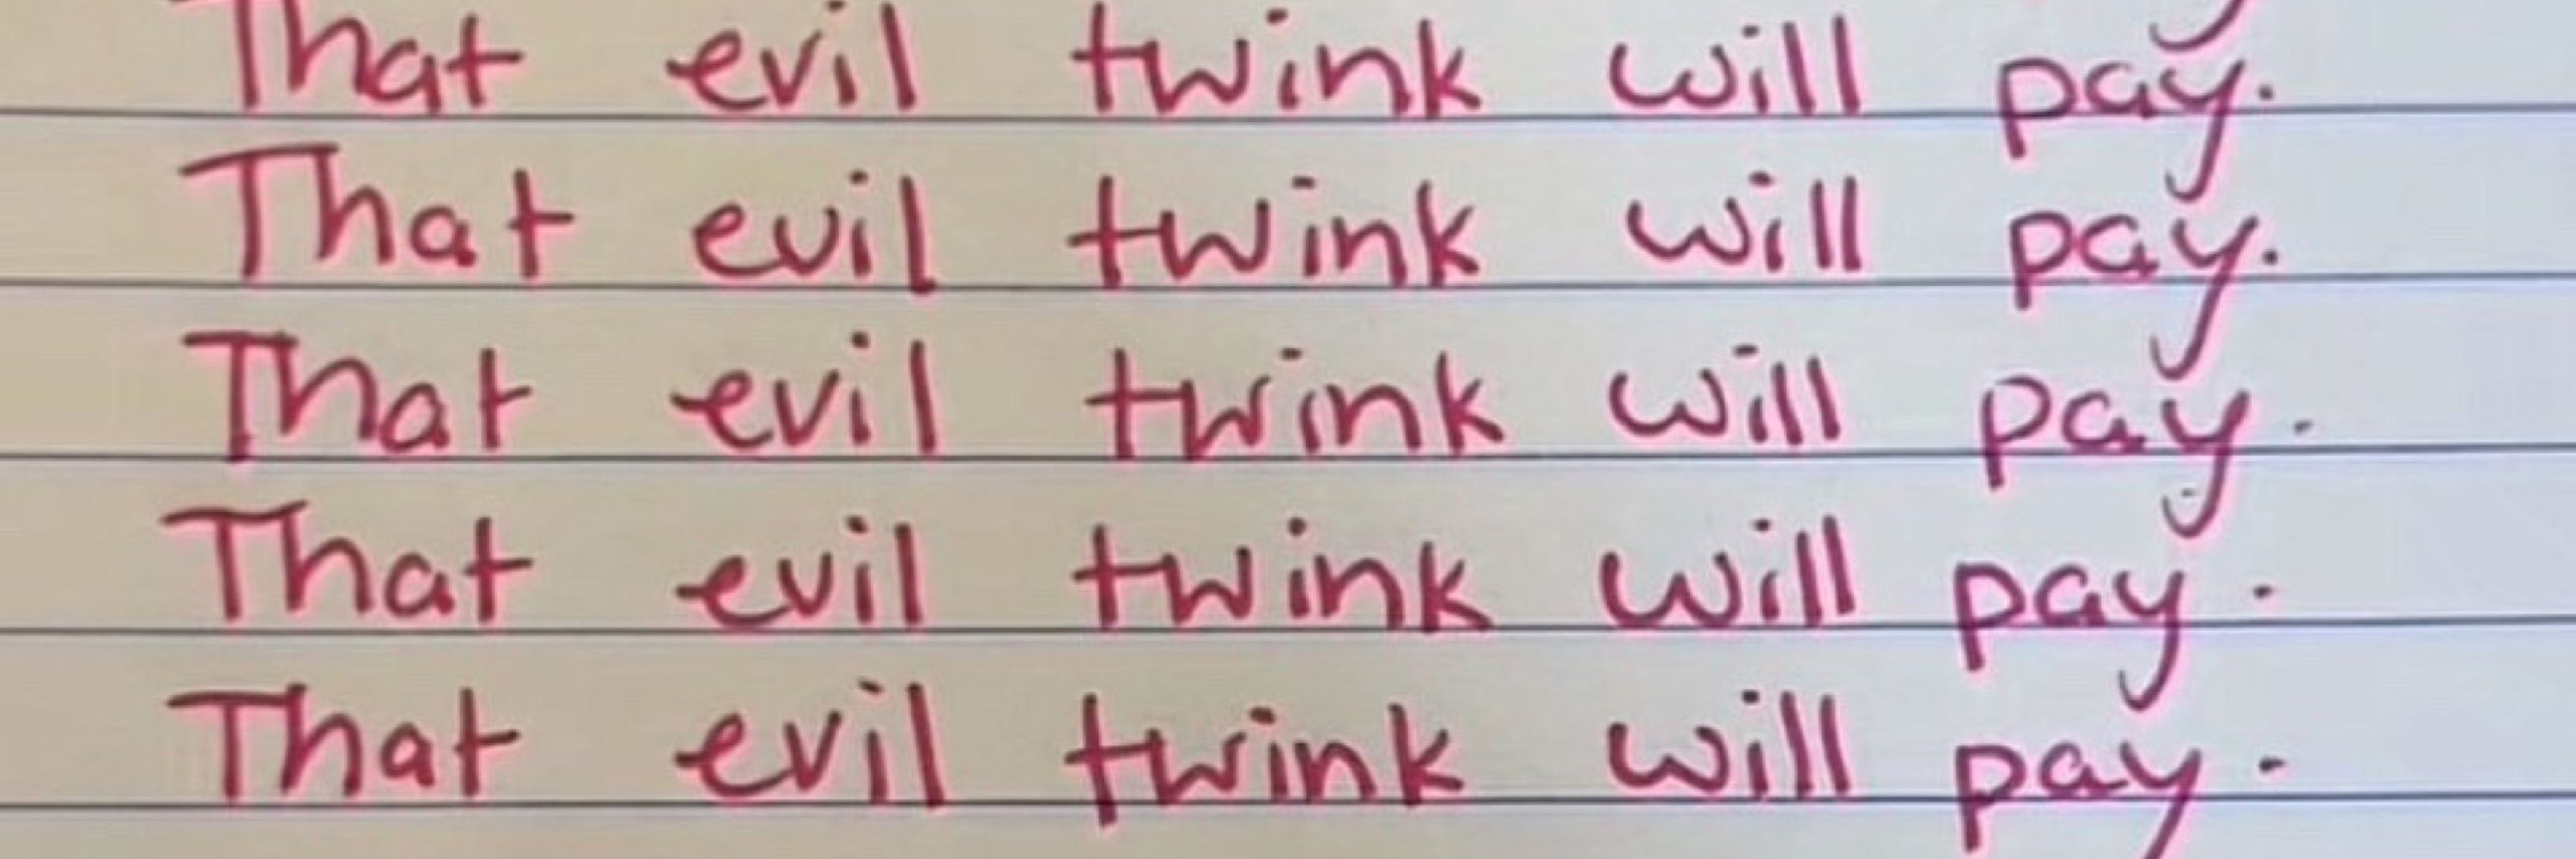 That evil twink will pay.
That evil twink will pay.
That evil twink will pay.
That evil twink will pay.
That evil twink will pay.